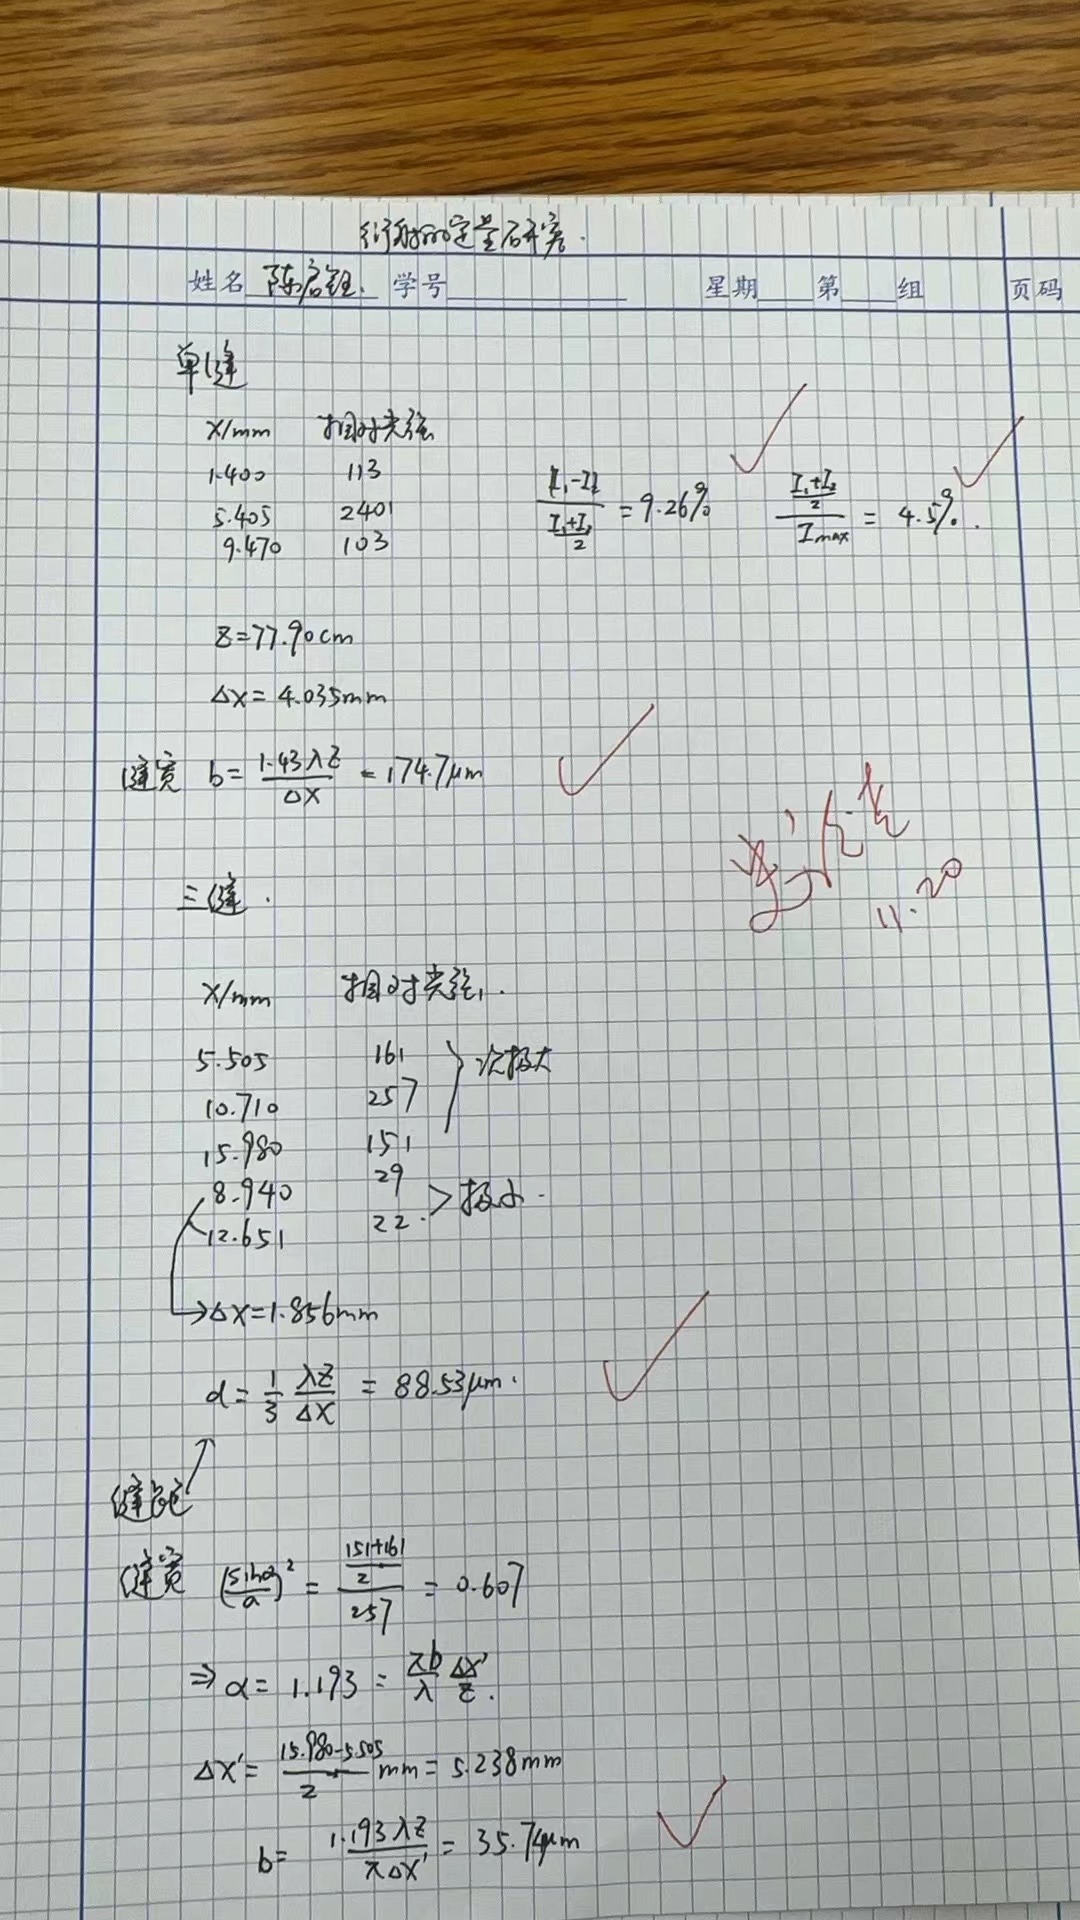 衍射的定量研究.
姓名 陈启钰. 学号 星期 第 组 页码
单缝
X/mm 相对光强
1.400 113
5.405 2401
9.470 103
|I₁-I₂| / (I₁+I₂)/2 = 9.26% (I₁+I₂)/2 / Imax = 4.5%.
Z=77.90cm
ΔX=4.035mm
缝宽 b= 1.43λZ/ΔX = 174.7μm
三缝.
11.20
X/mm 相对光强.
5.505 161
10.710 257 } 次极大
15.980 151
8.940 29
12.651 22. > 极小.
→ΔX=1.856mm
d= 1/3 λZ/ΔX = 88.53μm.
缝距
缝宽 (sinα/α)² = (151+161)/2 / 257 = 0.607
⇒ α= 1.193 = πb/λ ΔX'/Z.
ΔX'= (15.980-5.505)/2 mm = 5.238mm
b= 1.193λZ/πΔX' = 35.74μm